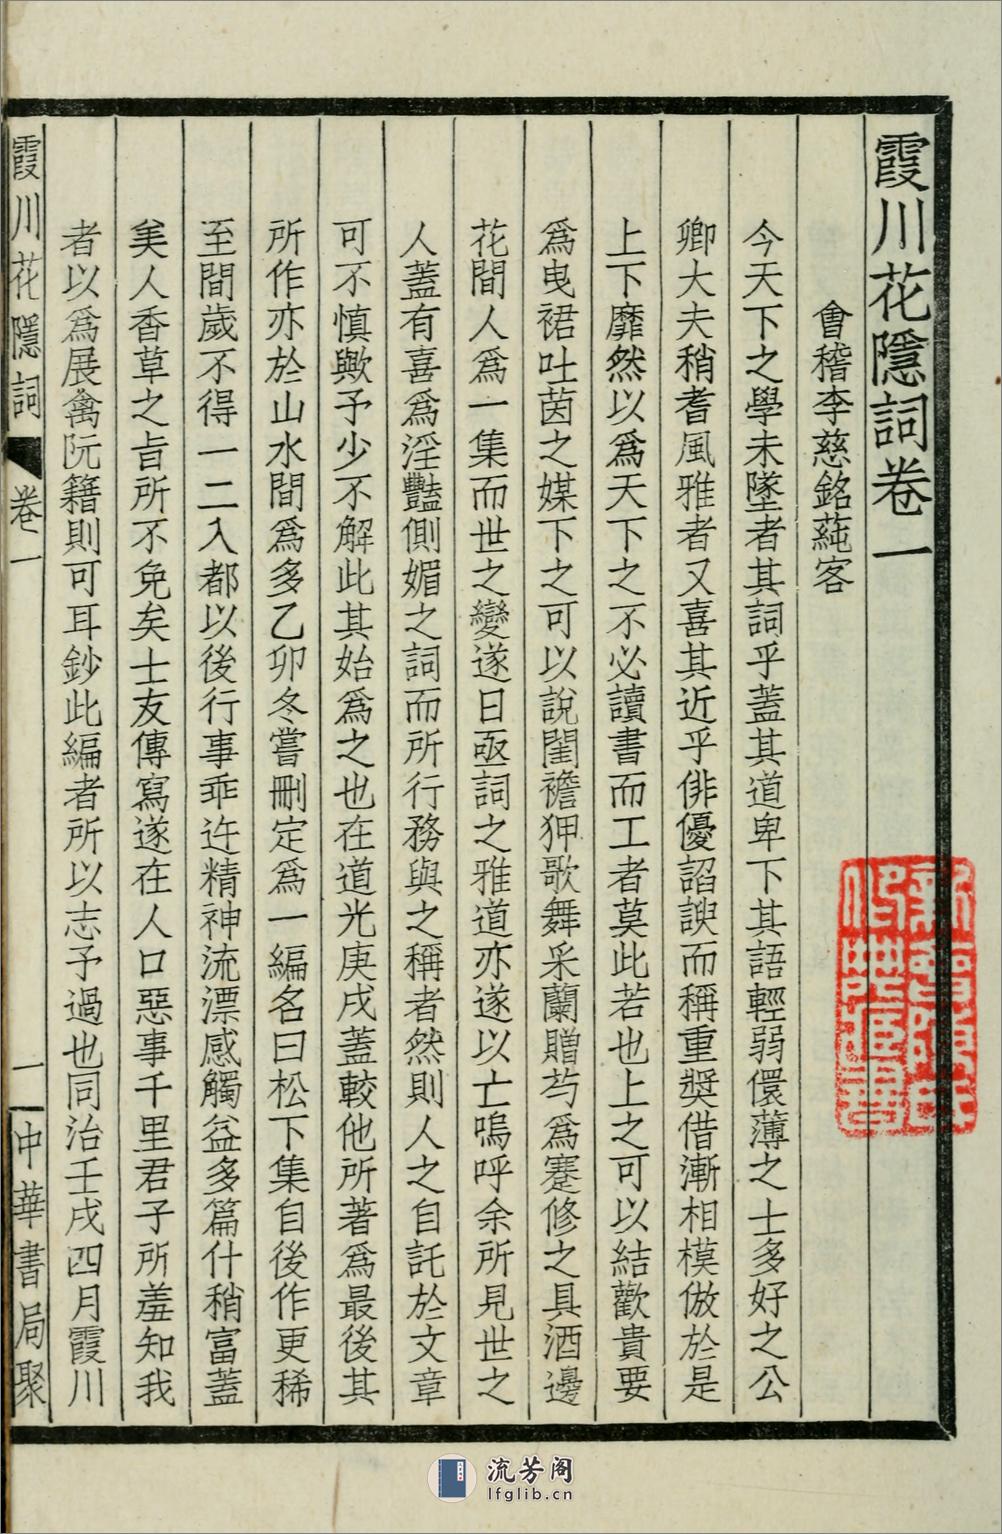 霞川花隱詞卷一
會稽李慈銘蒓客
今天下之學未墜者其詞乎蓋其道卑下其語輕弱儇薄之士多好之公
卿大夫稍耆風雅者又喜其近乎俳優諂諛而稱重獎借漸相模倣於是
上下靡然以爲天下之不必讀書而工者莫此若也上之可以結歡貴要
爲曳裾吐茵之媒下之可以說閨襜狎歌舞采蘭贈芍爲蹇修之具酒邊
花間人爲一集而世之變遂日亟詞之雅道亦遂以亡嗚呼余所見世之
人蓋有喜爲淫豔側媚之詞而所行務與之稱者然則人之自託於文章
可不慎歟予少不解此其始爲之也在道光庚戌蓋較他所著爲最後其
所作亦於山水間爲多乙卯冬嘗刪定爲一編名曰松下集自後作更稀
至間歲不得一二入都以後行事乖迕精神流漂感觸益多篇什稍富蓋
美人香草之旨所不免矣士友傳寫遂在人口惡事千里君子所羞知我
者以爲展禽阮籍則可耳鈔此編者所以志予過也同治壬戌四月霞川
霞川花隱詞 卷一 一 中華書局聚
流芳阁
lfglib.cn